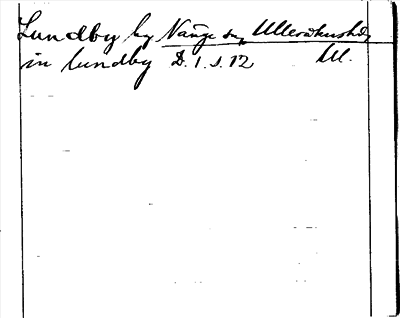 Lundby by Vänge sn, Ulleråkershd,
in lundby D. 1. s. 12 Ul.